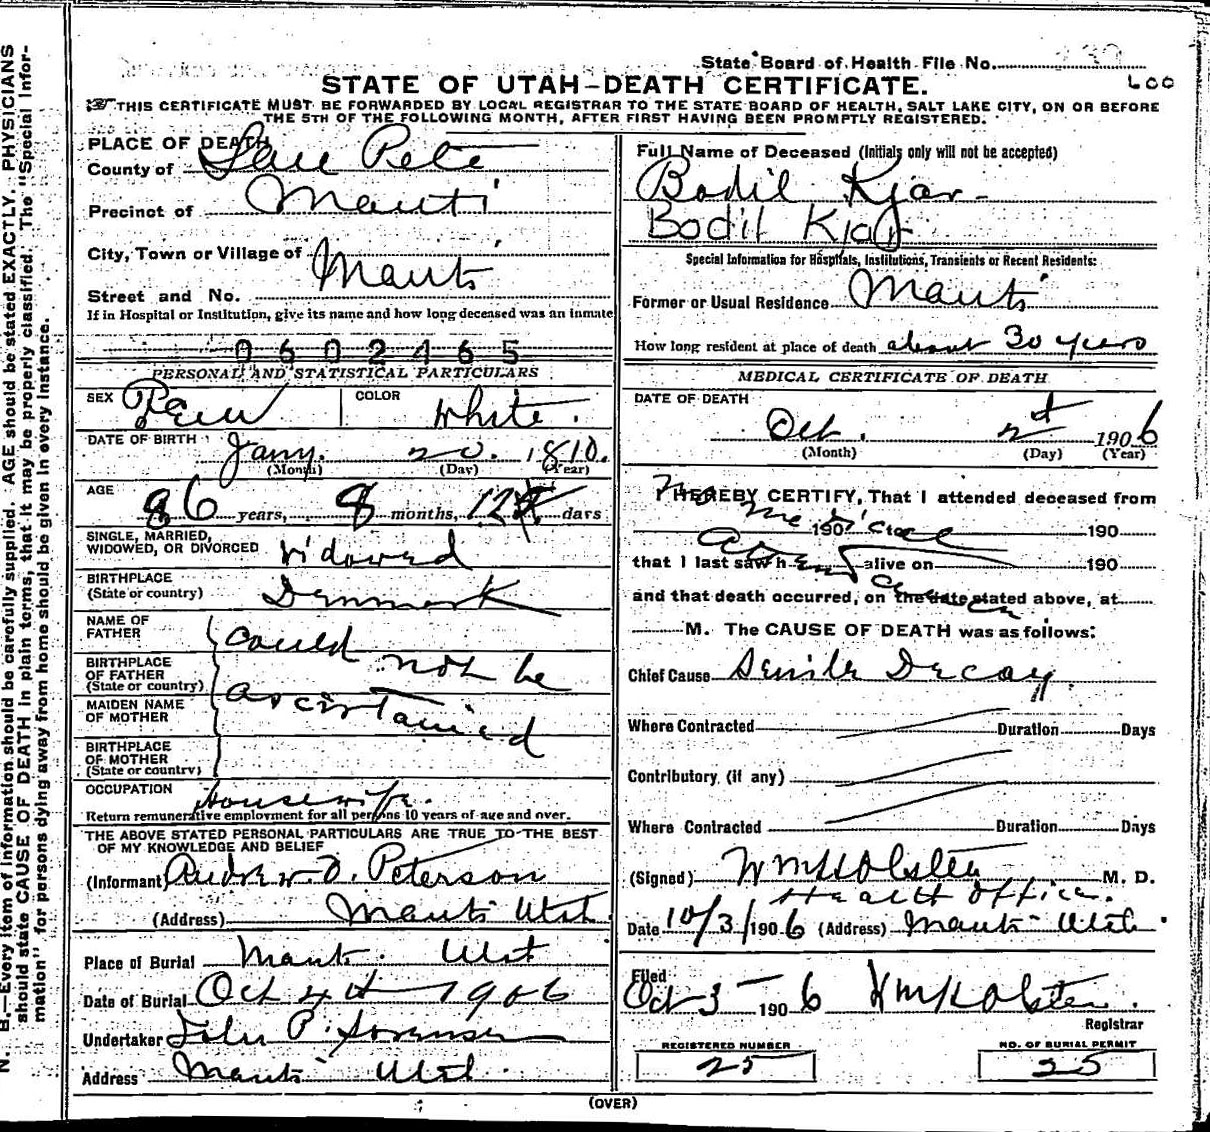 State Board of Health File No.
STATE OF UTAH—DEATH CERTIFICATE.
600
THIS CERTIFICATE MUST BE FORWARDED BY LOCAL REGISTRAR TO THE STATE BOARD OF HEALTH, SALT LAKE CITY, ON OR BEFORE
THE 5TH OF THE FOLLOWING MONTH, AFTER FIRST HAVING BEEN PROMPTLY REGISTERED.
PLACE OF DEATH
County of San Pete
Precinct of Manti
City, Town or Village of Manti
Street and No.
If in Hospital or Institution, give its name and how long deceased was an inmate
0602465
PERSONAL AND STATISTICAL PARTICULARS
SEX Fem COLOR White.
DATE OF BIRTH Jany. 20. 1810.
(Month) (Day) (Year)
AGE 86 years, 8 months, 12 days
SINGLE, MARRIED,
WIDOWED, OR DIVORCED Widowed
BIRTHPLACE
(State or country) Denmark
NAME OF
FATHER could
not be
BIRTHPLACE
OF FATHER
(State or country) ascertained
MAIDEN NAME
OF MOTHER
BIRTHPLACE
OF MOTHER
(State or country)
OCCUPATION Housewife.
Return remunerative employment for all persons 10 years of age and over.
THE ABOVE STATED PERSONAL PARTICULARS ARE TRUE TO THE BEST
OF MY KNOWLEDGE AND BELIEF
(Informant) Andrew. O. Peterson
(Address) Manti Utah.
Place of Burial Manti. Utah
Date of Burial Oct 4th 1906
Undertaker John P. Sorensen
Address Manti Utah.
Full Name of Deceased (Initials only will not be accepted)
Bodil Kjar
Bodil Kjar
Special Information for Hospitals, Institutions, Transients or Recent Residents:
Former or Usual Residence Manti
How long resident at place of death about 30 years
MEDICAL CERTIFICATE OF DEATH
DATE OF DEATH
Oct. 2d 1906
(Month) (Day) (Year)
I HEREBY CERTIFY, That I attended deceased from
No Medical
190 to 190
Attendance
that I last saw h alive on 190
and that death occurred, on the date stated above, at
M. The CAUSE OF DEATH was as follows:
Chief Cause Senile Decay.
Where Contracted Duration Days
Contributory (if any)
Where Contracted Duration Days
(Signed) Wm H Olsten M. D.
Health Officer.
Date 10/3/1906 (Address) Manti Utah.
Filed
Oct 3 1906 Wm H Olsten.
Registrar
REGISTERED NUMBER
25
NO. OF BURIAL PERMIT
25
(OVER)
N. B.—Every item of information should be carefully supplied. AGE should be stated EXACTLY. PHYSICIANS
should state CAUSE OF DEATH in plain terms, that it may be properly classified. The "Special Infor-
mation" for persons dying away from home should be given in every instance.